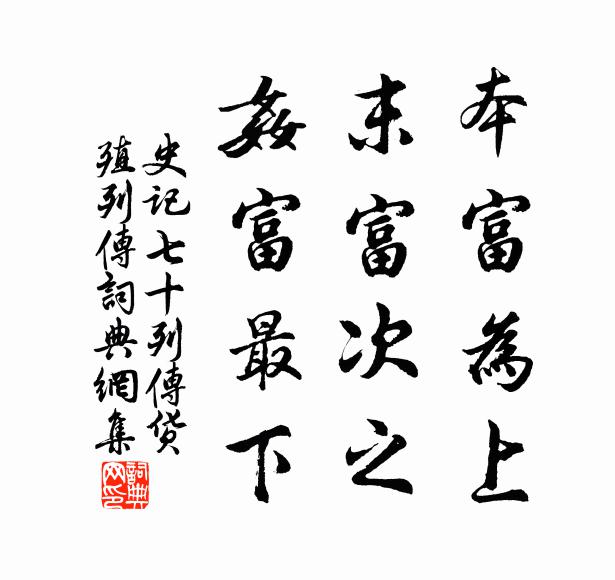 本富為上
末富次之
姦富最下
史記七十列傳貨
殖列傳詞典網集
詞典网印